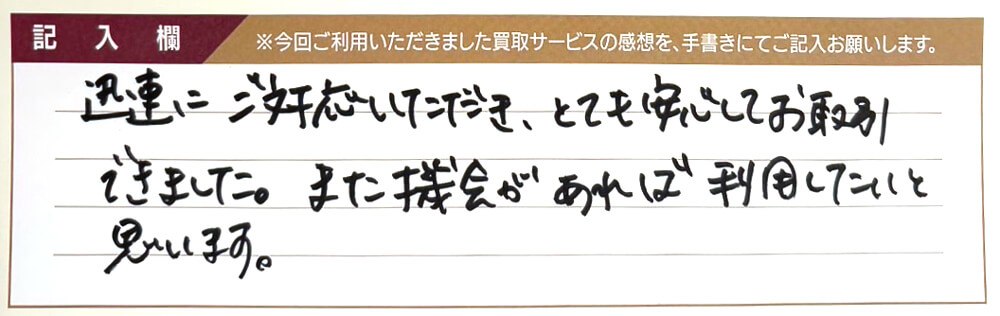 記入欄
※今回ご利用いただきました買取サービスの感想を、手書きにてご記入お願いします。
迅速に ご対応いただき、とても安心してお取引
できました。また機会があれば利用したいと
思います。